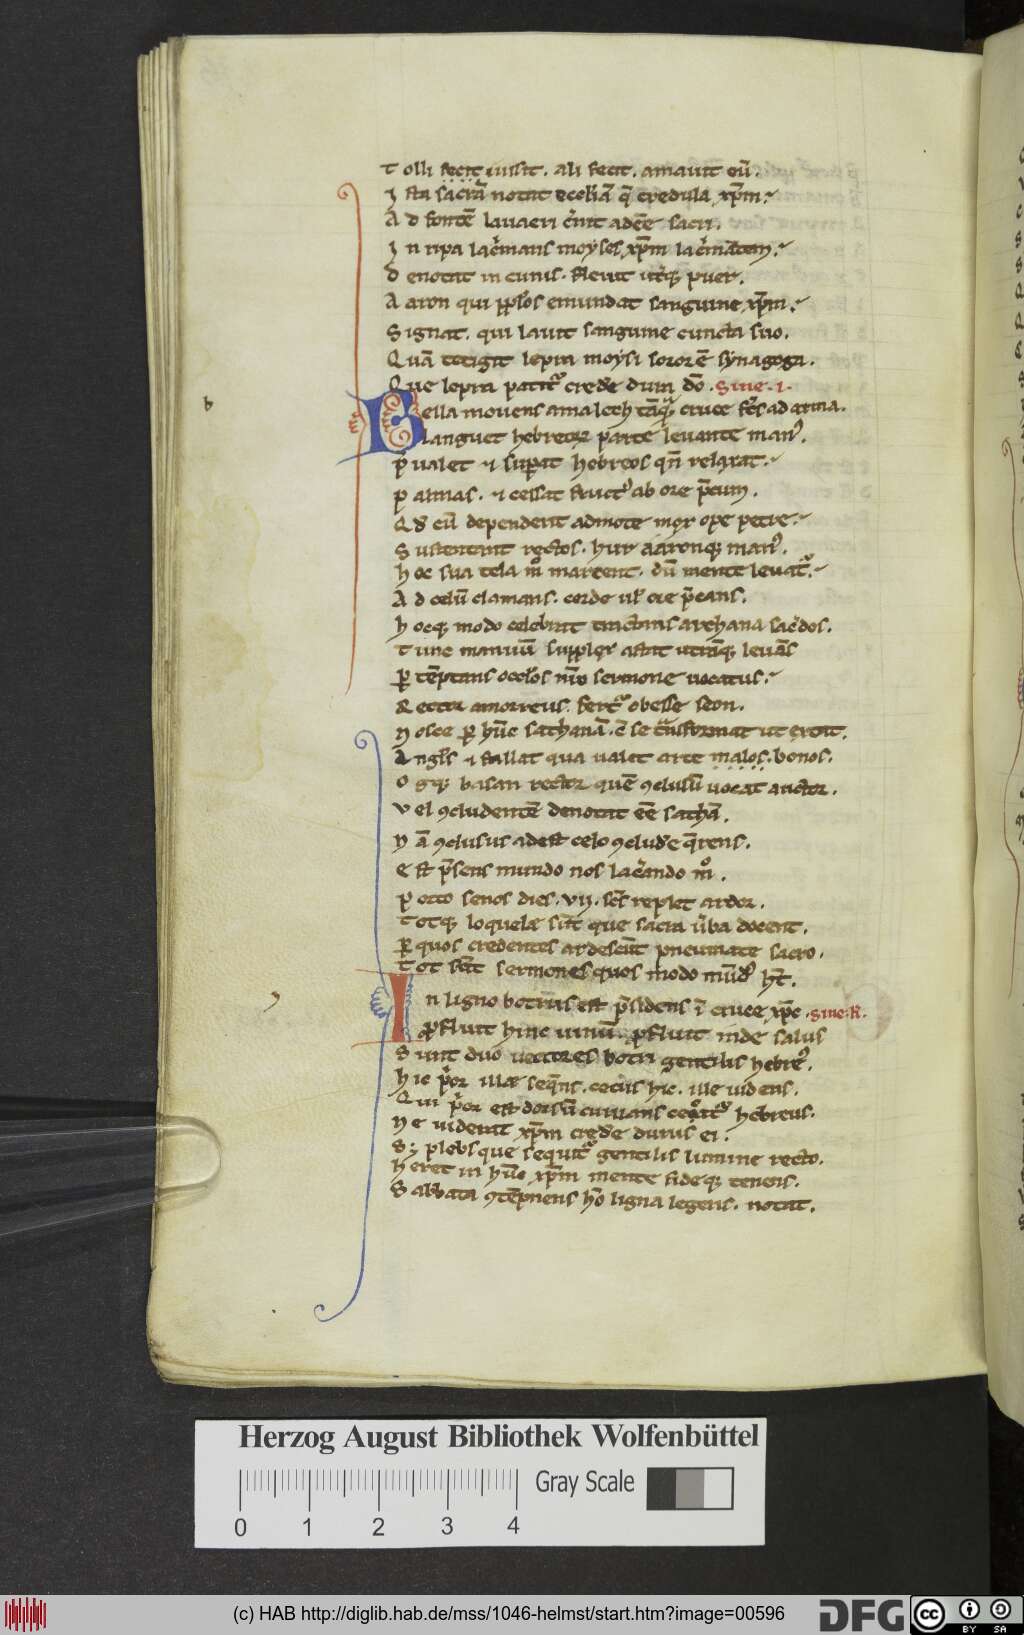 T olli fecit iussit. ali fecit. amauit eū.
I sta sacrā notat eccl'iā q̄ credula xp̄m.
A d fontē lauacri c̄nit adeē sacri.
I n ripa lac̄mans moyses xp̄m lac̄mātem.
D enotat in cunis. fleuit ut'q; puer.
A aron qui pp̄los emundat sanguine xp̄m.
S ignat. qui lauit sanguine cuncta suo.
Q uā tetigit lepra moysi sororē synagoga.
Q ue lepra patit' crede dum dō. Sine. i.
b
B ella mouens amalech tāq; cruce ad arma.
languet hebreor parte leuante man'.
p̄ualet & sup̄at hebreos qn̄ relaxat.
p almas. & cessat fruct' ab ore p̄cum.
Q d' eū dependent admote ope petre.
S ustentant rectos. hur aaronq; man'.
h oc sua tela m° marcent. dū mente leuat'.
A d celū clamans. corde ul' ore p̄cans.
h ocq; modo celebrat tractans archana sac'dos.
T unc manuū supplex astat utrāq; leuās
p tēptans occl'os sermone uocatus.
R ector amorreus. fert' obesse seon.
N osce p hūc sathanā. ē se t̄nsformat ut erit.
A ngl's & fallat qua ualet arte malos. bonos.
O gq; basan rector quē 9clusū uocat auctor.
V el 9cludentē denotat eē sathā.
N ā 9clusus adest celo 9clud'e q̄rens.
E st p̄sens mundo nos lac'ando m°.
P orro senos dies. vij. sc̄s replet ardor.
T otq; loquelae sūt que sacra ūba docent.
P quos credentes ardescūt pneumate sacro.
T ot sūt sermones quos modo mūd' hn̄t.
I n ligno botrus est p̄sidens ī cruce xp̄c. sine. k.
profluit hinc uinū. profluit inde salus
S unt duo uectores botri gentilis hebre'.
h ic p'or ille seq̄ns. cecus hic. ille uidens.
Q ui p'or est dorsū curuans hebreus.
N e uiderat xp̄m cred'e durus ei.
S; plebs que sequit' gentilis lumine recto.
h eret in hūc xp̄m mente fideq; tenens.
S abbata 9tēpnens hō ligna legens. notat.
Herzog August Bibliothek Wolfenbüttel
Gray Scale
0 1 2 3 4
(c) HAB http://diglib.hab.de/mss/1046-helmst/start.htm?image=00596
DFG
cc BY SA